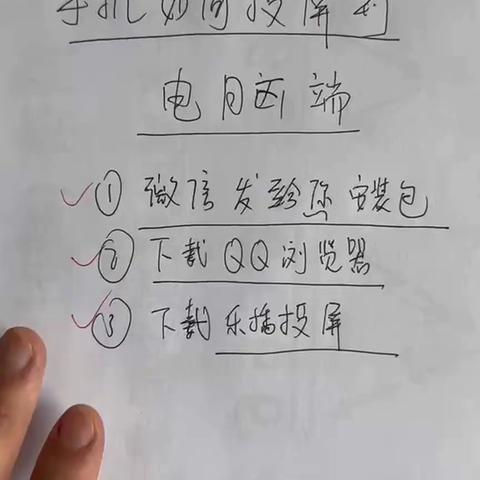 手机如何投屏到
电脑端
① 微信发给你安装包
② 下载QQ浏览器
③ 下载乐播投屏